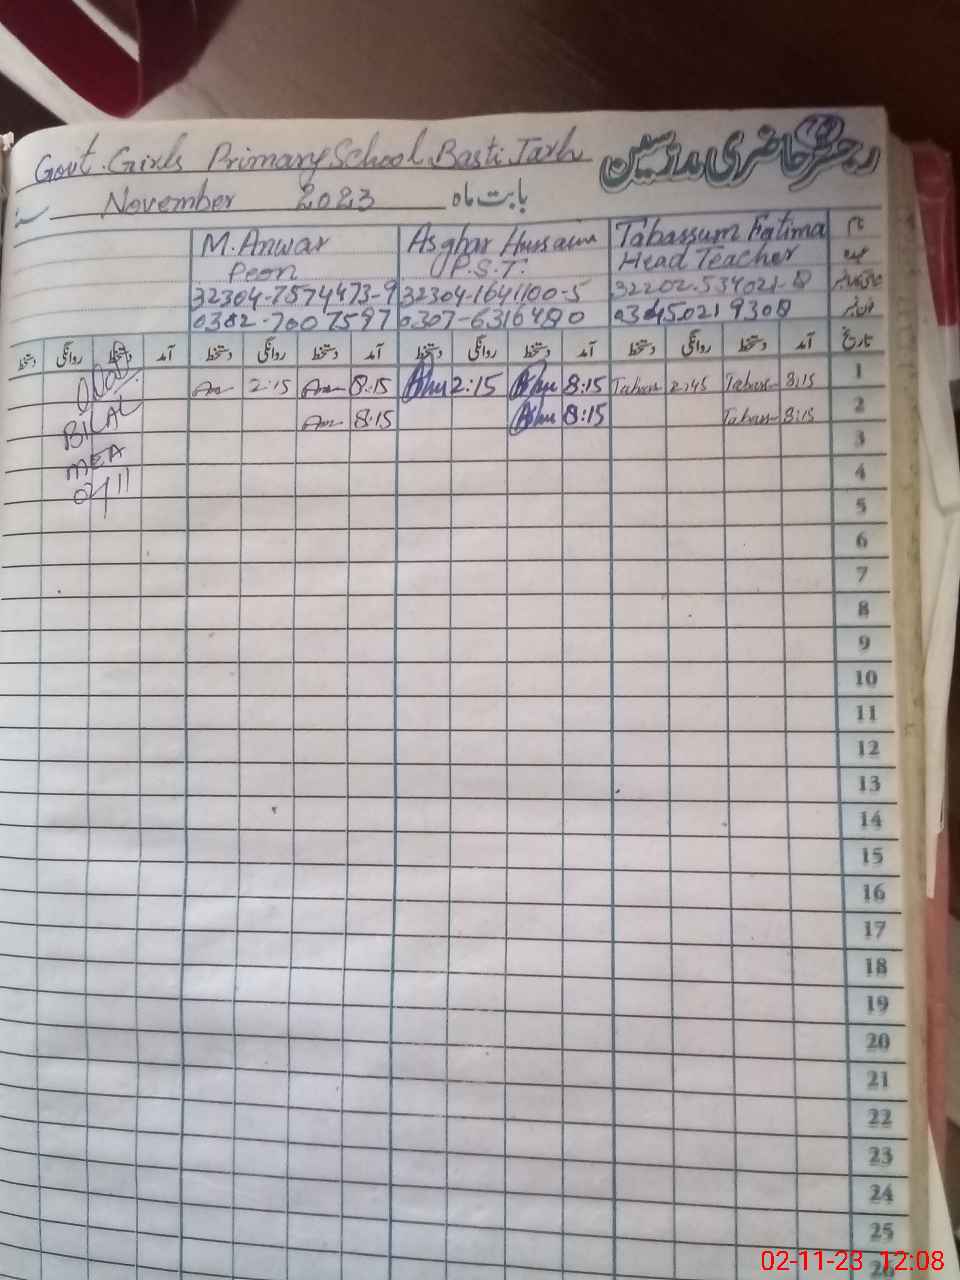 رجسٹر حاضری مدرسین
Govt. Girls Primary School Basti Tarh
بابت ماہ November 2023
نام Tabassum Fatima Asghar Hussain M. Anwar
عہدہ Head Teacher P.S.T. Peon
32202-534021-8 32304-1641100-5 32304-7574473-9
03450219308 0307-6316480 0302-7007597
تاریخ آمد دستخط روانگی دستخط آمد دستخط روانگی دستخط آمد دستخط روانگی دستخط آمد دستخط روانگی دستخط
1 8:15 Tabas 2:45 Tabas 8:15 2:15 8:15 Am 2:15 Am
2 8:15 Tabas 8:15 8:15 Am
BILAL
MEA
3
4
5
6
7
8
9
10
11
12
13
14
15
16
17
18
19
20
21
22
23
24
25
26
02-11-23 12:08